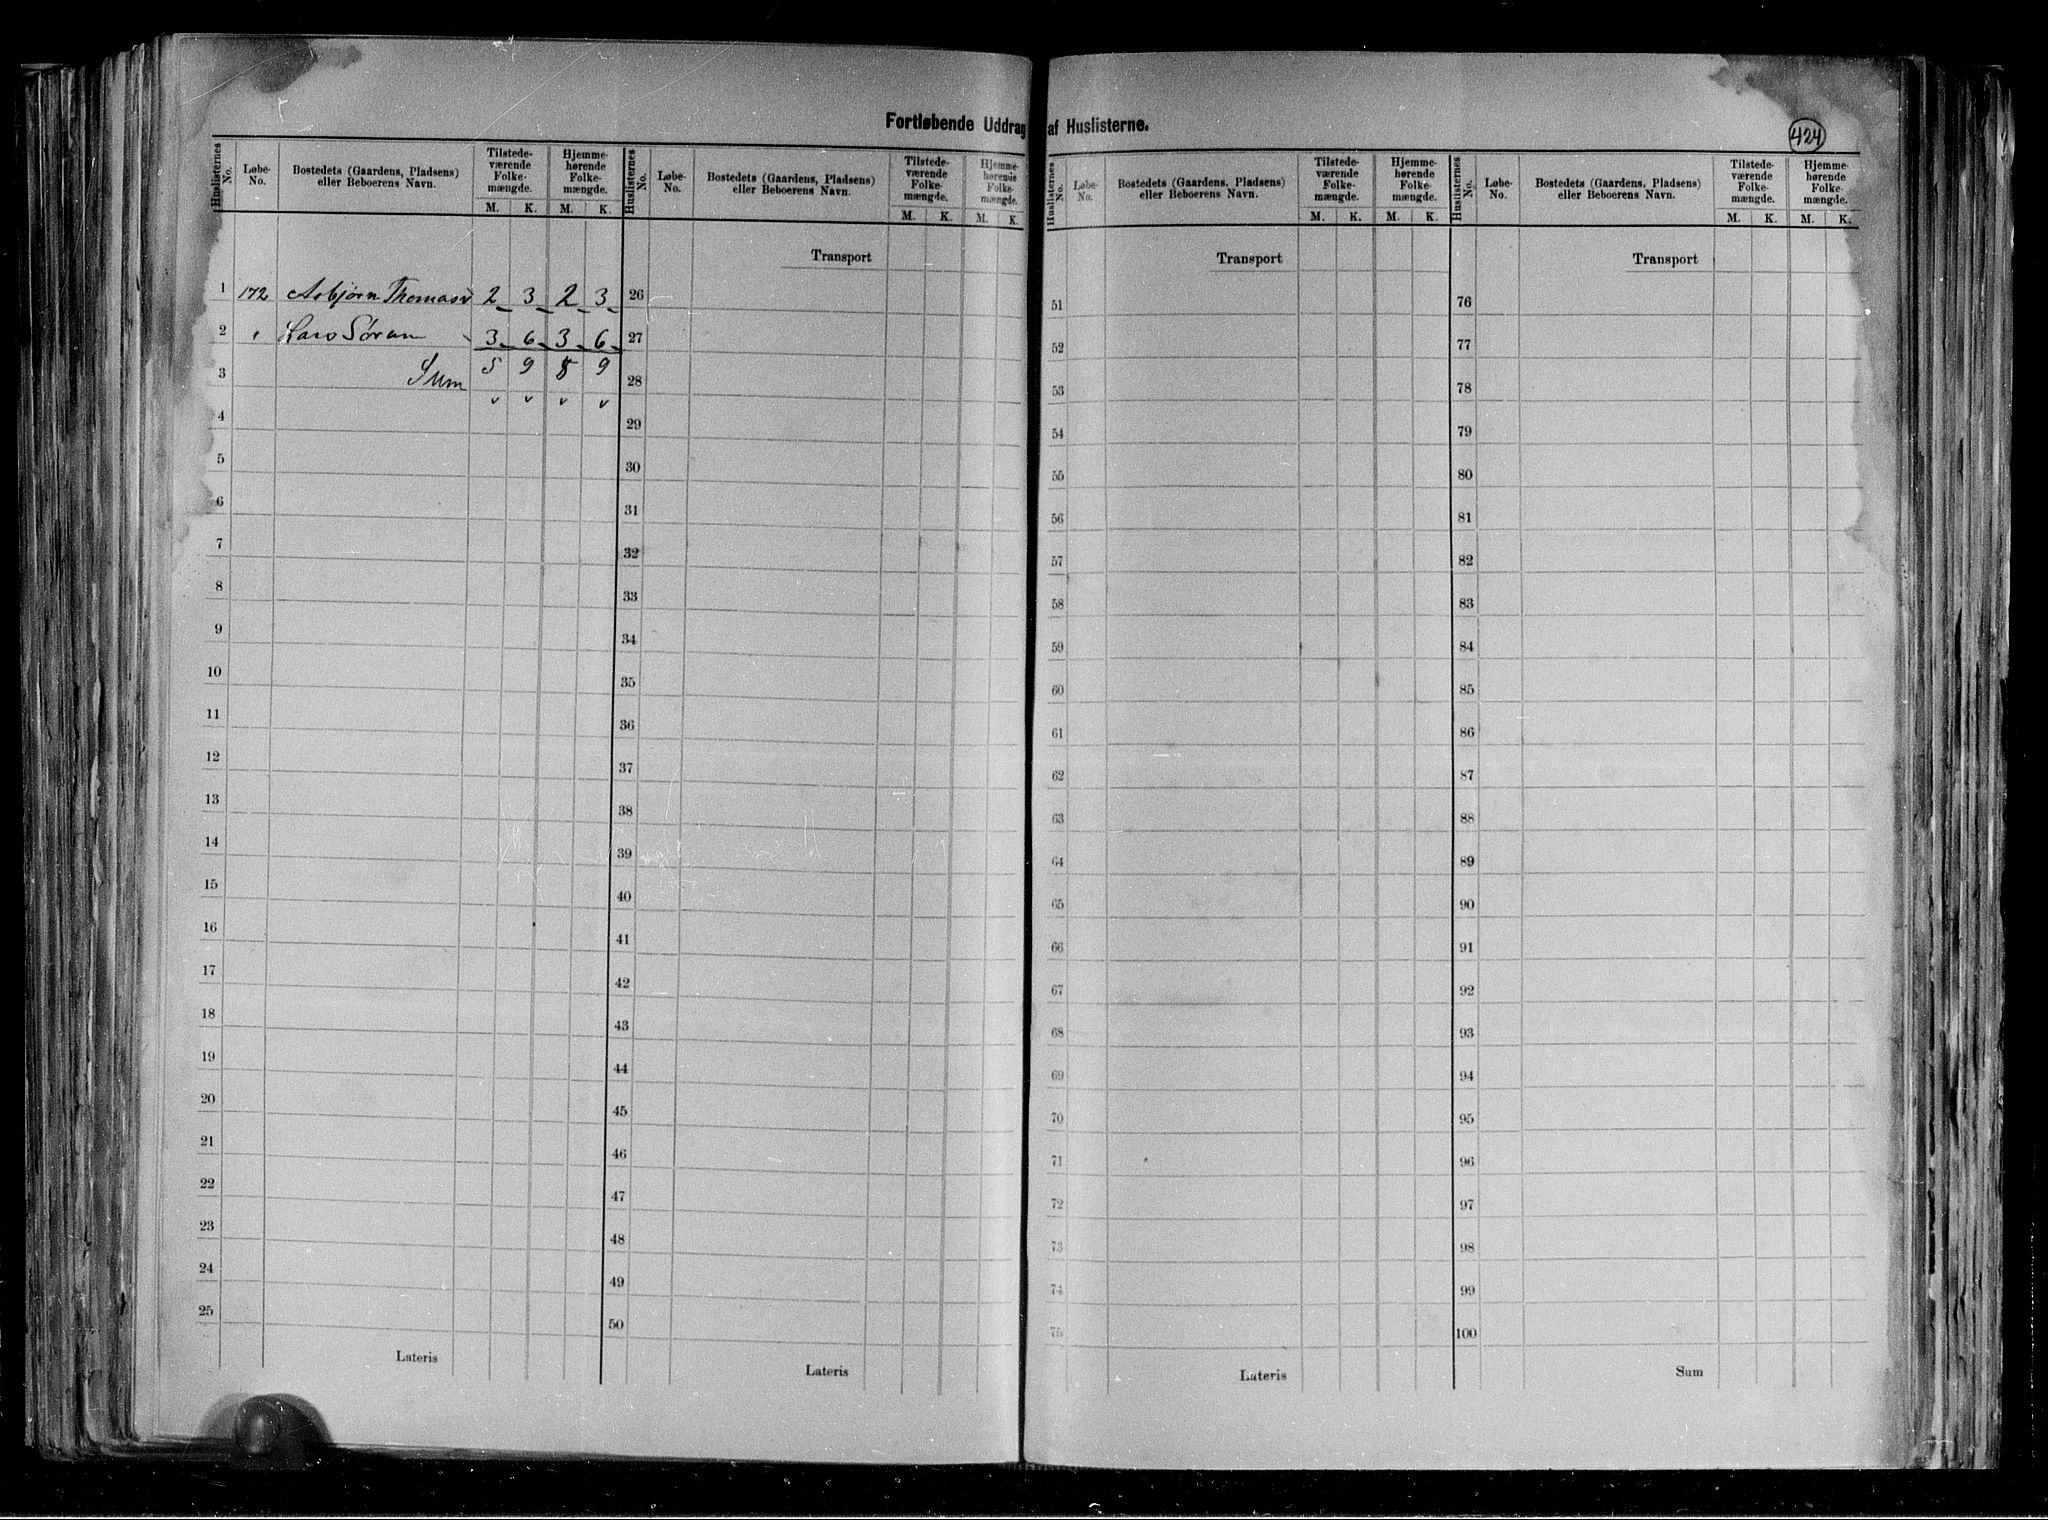 Fortløbende Uddrag af Huslisterne.
424
Huslisternes No. | Løbe-No. | Bostedets (Gaardens, Pladsens) eller Beboerens Navn. | Tilstedeværende Folkemængde. M. K. | Hjemmehørende Folkemængde. M. K.
1 172 Asbjørn Thomass 2 3 2 3
2 " Lars Søran 3 6 3 6
3 Sum 5 9 5 9
4
5
6
7
8
9
10
11
12
13
14
15
16
17
18
19
20
21
22
23
24
25
Lateris
Huslisternes No. | Løbe-No. | Bostedets (Gaardens, Pladsens) eller Beboerens Navn. | Tilstedeværende Folkemængde. M. K. | Hjemmehørende Folkemængde. M. K.
Transport
26
27
28
29
30
31
32
33
34
35
36
37
38
39
40
41
42
43
44
45
46
47
48
49
50
Lateris
Huslisternes No. | Løbe-No. | Bostedets (Gaardens, Pladsens) eller Beboerens Navn. | Tilstedeværende Folkemængde. M. K. | Hjemmehørende Folkemængde. M. K.
Transport
51
52
53
54
55
56
57
58
59
60
61
62
63
64
65
66
67
68
69
70
71
72
73
74
75
Lateris
Huslisternes No. | Løbe-No. | Bostedets (Gaardens, Pladsens) eller Beboerens Navn. | Tilstedeværende Folkemængde. M. K. | Hjemmehørende Folkemængde. M. K.
Transport
76
77
78
79
80
81
82
83
84
85
86
87
88
89
90
91
92
93
94
95
96
97
98
99
100
Sum